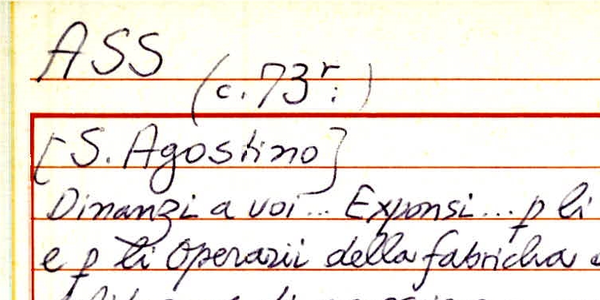 ASS
(c. 73r.)
[S. Agostino]
Dinanzi a voi... Exponsi... p li
e p li Operarii della fabricha